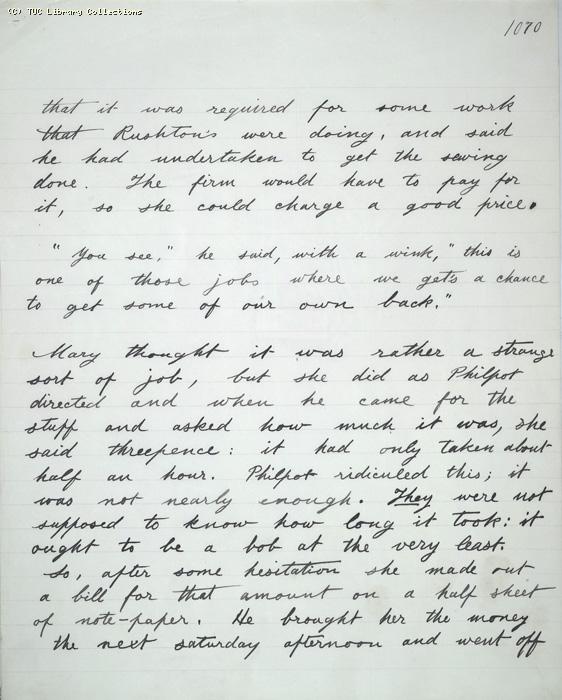 (C) TUC Library Collections
1070
that it was required for some work
that Rushton's were doing, and said
he had undertaken to get the sewing
done. The firm would have to pay for
it, so she could charge a good price.
"You see," he said, with a wink, "this is
one of those jobs where we gets a chance
to get some of our own back."
Mary thought it was rather a strange
sort of job, but she did as Philpot
directed and when he came for the
stuff and asked how much it was, she
said threepence: it had only taken about
half an hour. Philpot ridiculed this; it
was not nearly enough. They were not
supposed to know how long it took: it
ought to be a bob at the very least.
So, after some hesitation she made out
a bill for that amount on a half sheet
of note-paper. He brought her the money
the next saturday afternoon and went off